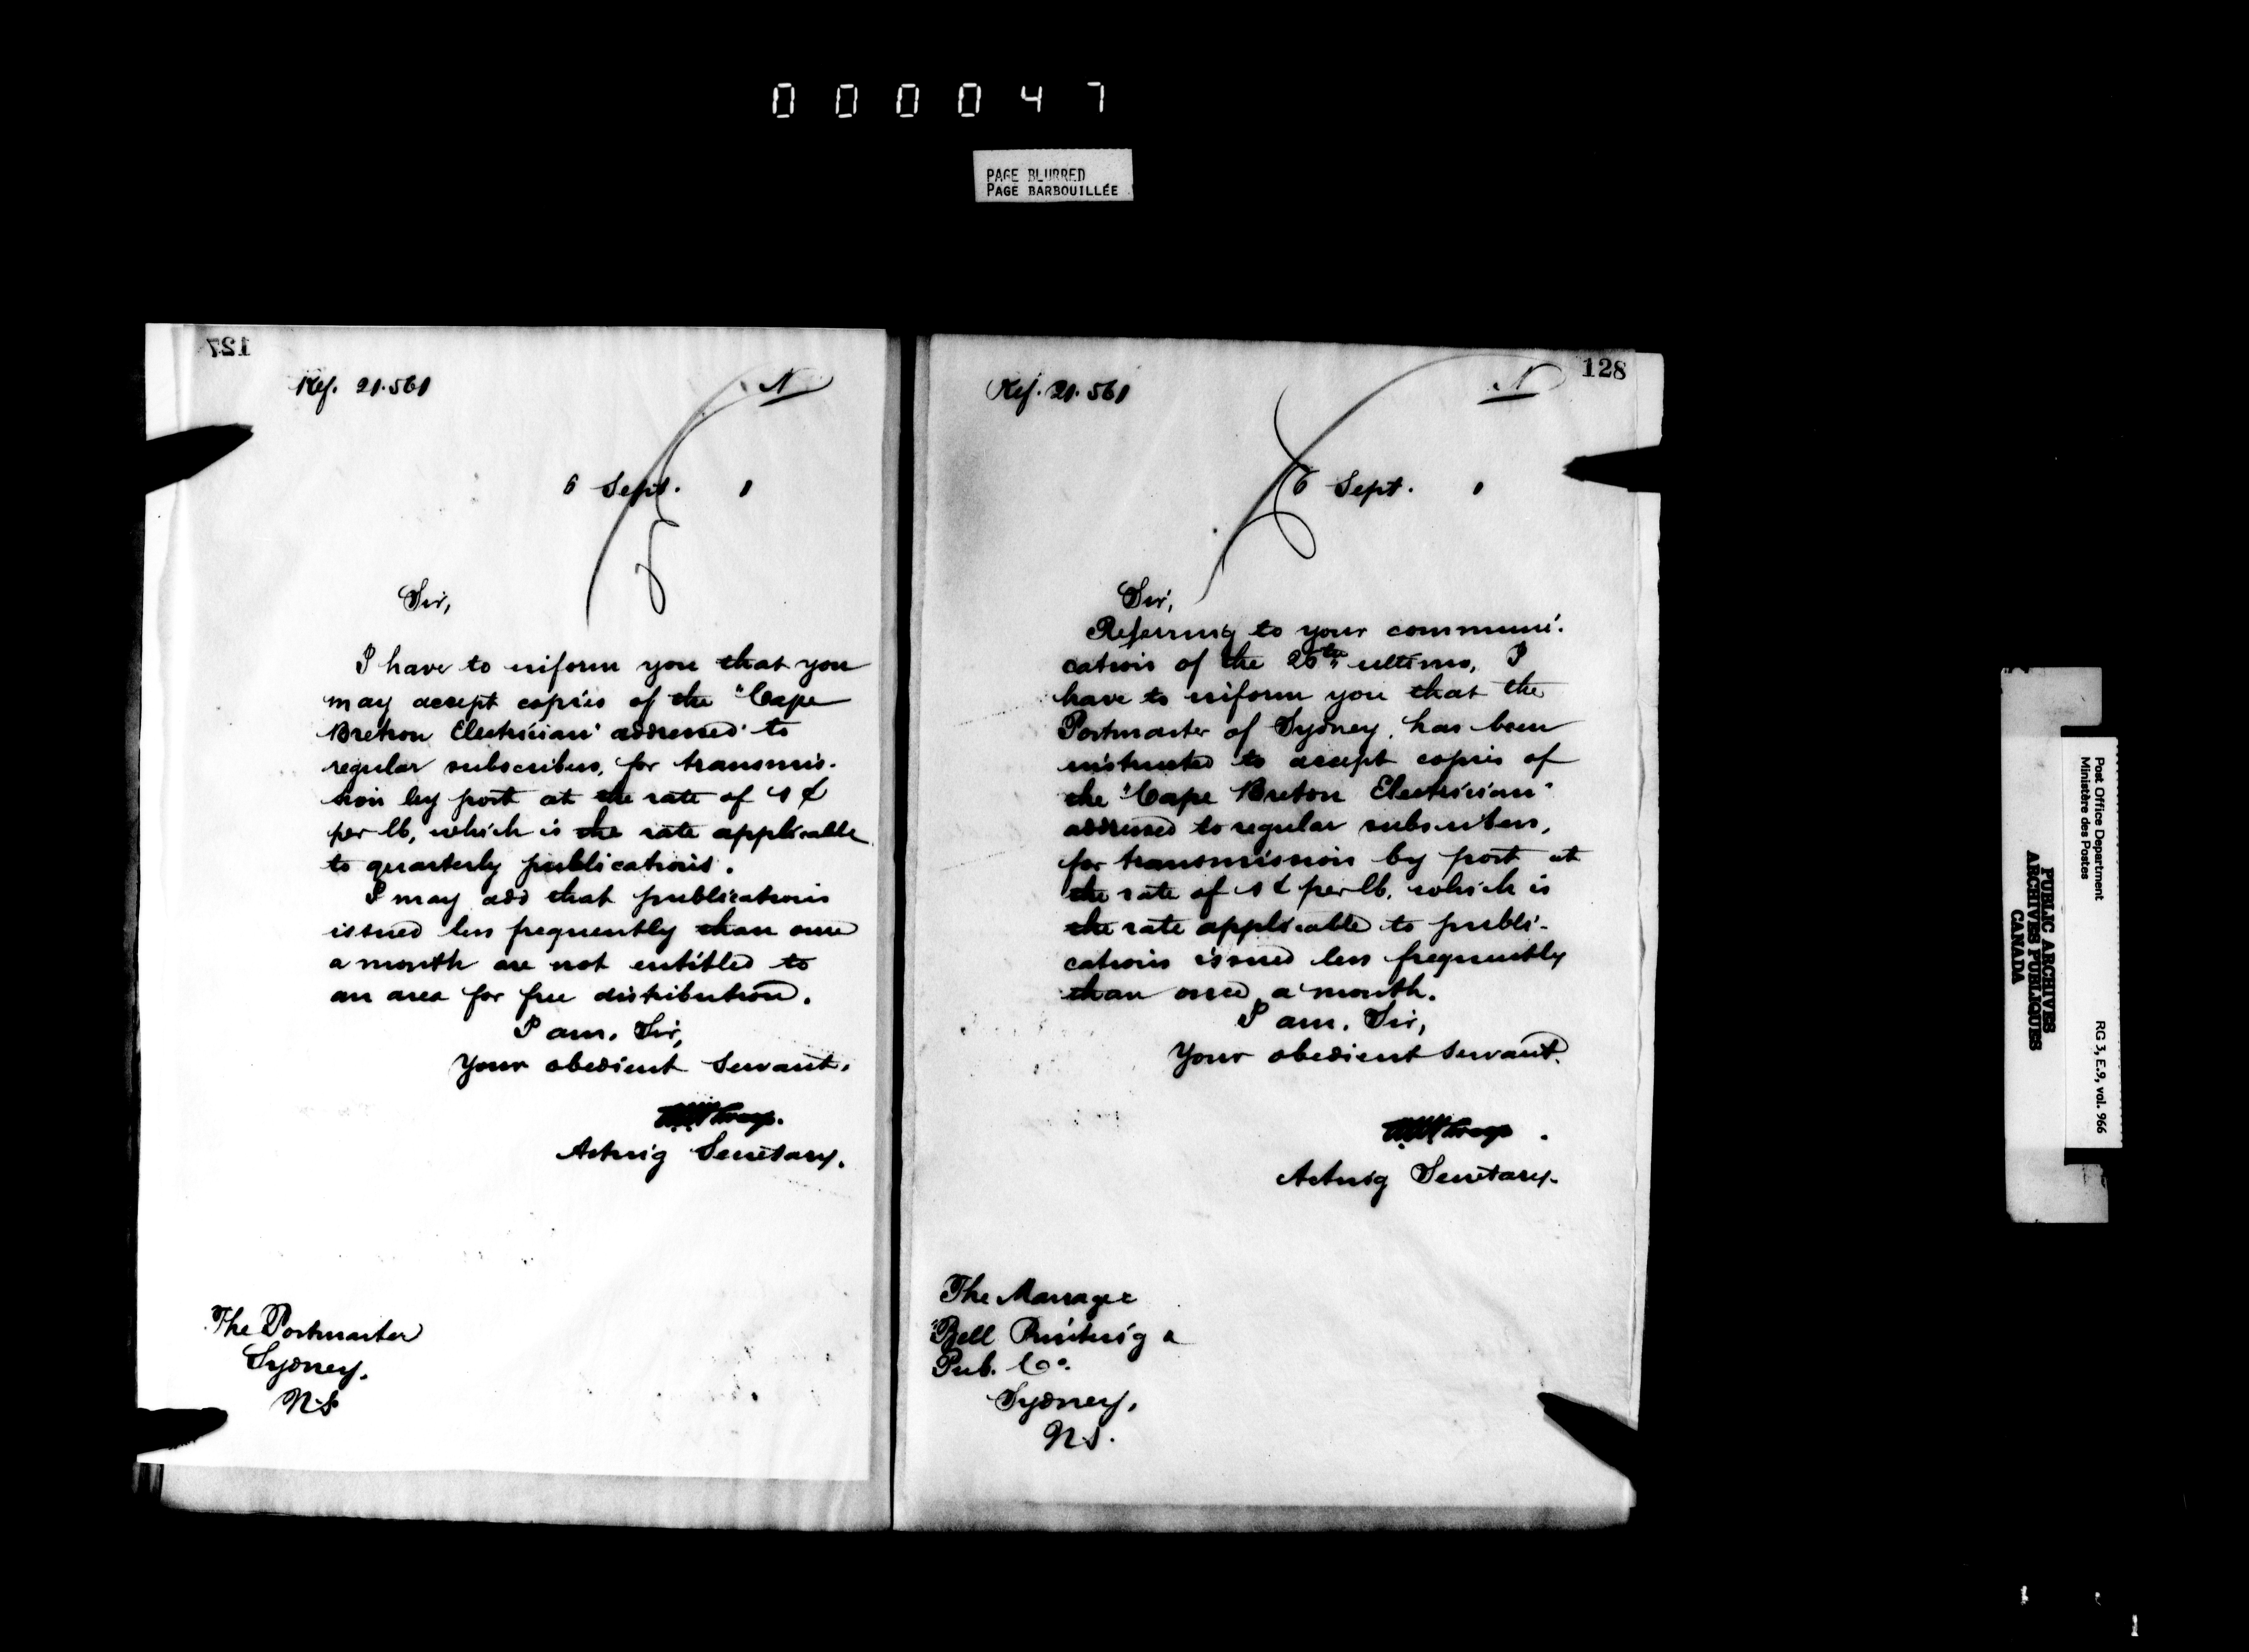 000047
PAGE BLURRED
PAGE BARBOUILLÉE
127
Ref. 21.561
N
6 Sept. 1
Sir,
I have to inform you that you
may accept copies of the "Cape
Breton Electrician" addressed to
regular subscribers, for transmis-
sion by post at the rate of 1 ¢
per lb, which is the rate applicable
to quarterly publications.
I may add that publications
issued less frequently than once
a month are not entitled to
an area for free distribution.
I am, Sir,
Your obedient Servant,
Acting Secretary.
The Postmaster
Sydney,
N.S
128
Ref. 21.561
N
6 Sept. 1
Sir,
Referring to your communi-
cation of the 26th ultimo, I
have to inform you that the
Postmaster of Sydney, has been
instructed to accept copies of
the "Cape Breton Electrician"
addressed to regular subscribers,
for transmission by post at
the rate of 1 ¢ per lb. which is
the rate applicable to publi-
cations issued less frequently
than once a month.
I am, Sir,
Your obedient Servant.
Acting Secretary.
The Manager
Bell Printing &
Pub. Co.
Sydney,
N.S.
Post Office Department
Ministère des Postes
RG 3, E.9, vol. 966
PUBLIC ARCHIVES
ARCHIVES PUBLIQUES
CANADA